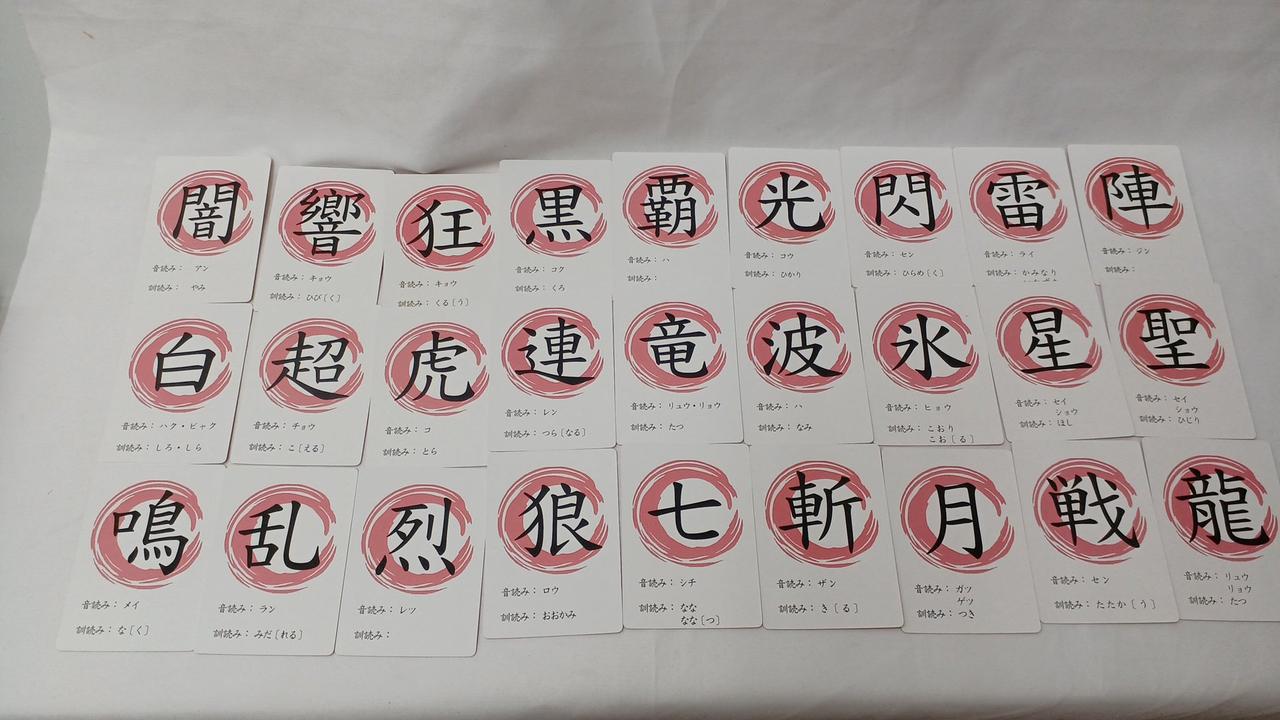 闇
音読み： アン
訓読み： やみ
響
音読み： キョウ
訓読み： ひび［く］
狂
音読み： キョウ
訓読み： くる［う］
黒
音読み： コク
訓読み： くろ
覇
音読み： ハ
訓読み：
光
音読み： コウ
訓読み： ひかり
閃
音読み： セン
訓読み： ひらめ［く］
雷
音読み： ライ
訓読み： かみなり
陣
音読み： ジン
訓読み：
白
音読み： ハク・ビャク
訓読み： しろ・しら
超
音読み： チョウ
訓読み： こ［える］
虎
音読み： コ
訓読み： とら
連
音読み： レン
訓読み： つら［なる］
竜
音読み： リュウ・リョウ
訓読み： たつ
波
音読み： ハ
訓読み： なみ
氷
音読み： ヒョウ
訓読み： こおり
こお［る］
星
音読み： セイ
ショウ
訓読み： ほし
聖
音読み： セイ
ショウ
訓読み： ひじり
鳴
音読み： メイ
訓読み： な［く］
乱
音読み： ラン
訓読み： みだ［れる］
烈
音読み： レツ
訓読み：
狼
音読み： ロウ
訓読み： おおかみ
七
音読み： シチ
訓読み： なな
なな［つ］
斬
音読み： ザン
訓読み： き［る］
月
音読み： ガツ
ゲツ
訓読み： つき
戦
音読み： セン
訓読み： たたか［う］
龍
音読み： リュウ
リョウ
訓読み： たつ